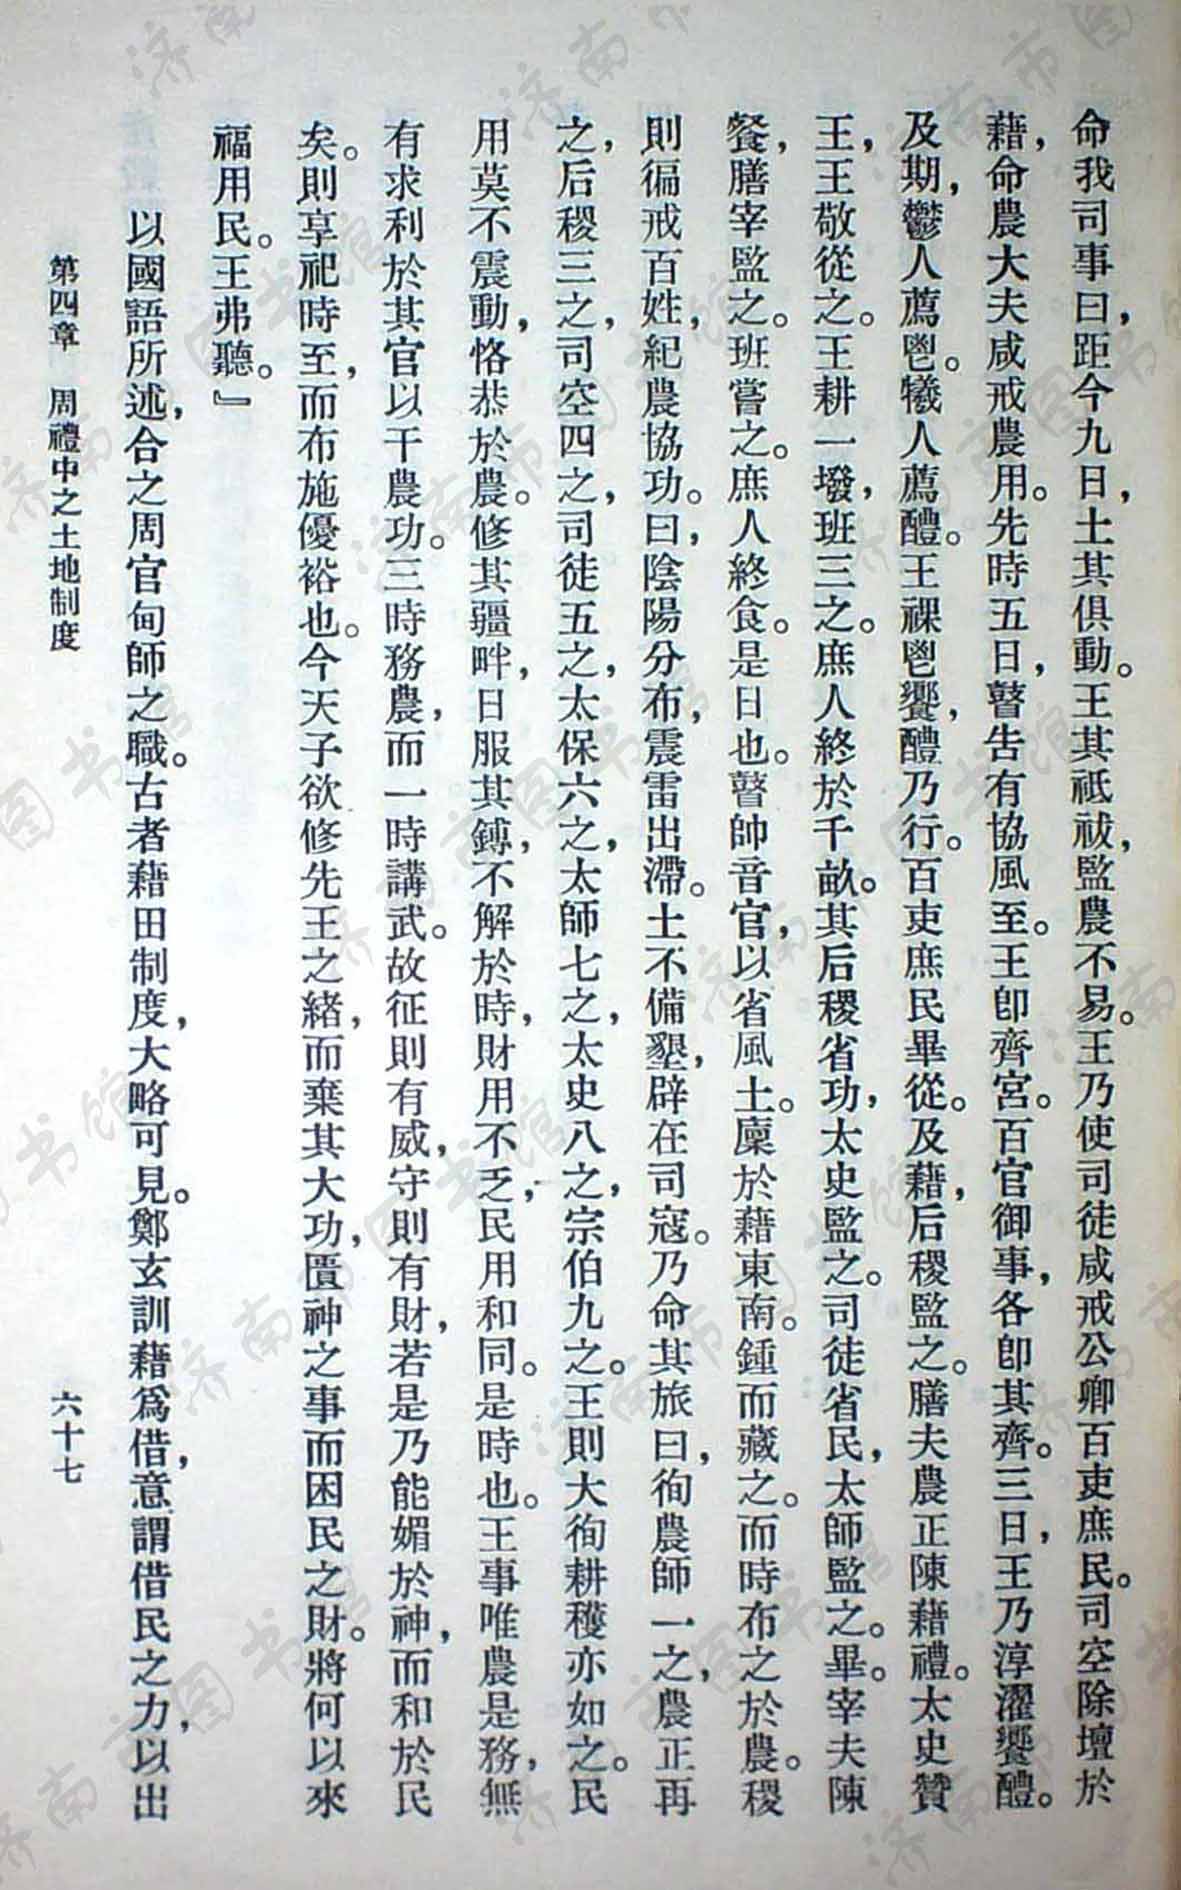 命我司事曰，距今九日，土其俱動。王其祗祓，監農不易。王乃使司徒咸戒公卿百吏庶民。司空除壇於
藉，命農大夫咸戒農用。先時五日，瞽告有協風至。王卽齊宮。百官御事，各卽其齊。三日，王乃淳濯饗醴。
及期，鬱人薦鬯。犧人薦醴。王祼鬯饗，醴乃行。百吏庶民畢從。及藉，后稷監之。膳夫農正陳藉禮。太史贊
王，王敬從之。王耕一墢，班三之。庶人終於千畝。其后稷省功，太史監之。司徒省民，太師監之。畢。宰夫陳
餐，膳宰監之。班嘗之。庶人終食。是日也。瞽帥音官，以省風土。廩於藉東南。鍾而藏之。而時布之於農。稷
則徧戒百姓，紀農協功。曰，陰陽分布，震雷出滯。土不備墾，辟在司寇。乃命其旅曰，徇農師一之，農正再
之，后稷三之，司空四之，司徒五之，太保六之，太師七之，太史八之，宗伯九之。王則大徇耕穫亦如之。民
用莫不震動，恪恭於農。修其疆畔，日服其鎛，不解於時，財用不乏，民用和同。是時也。王事唯農是務，無
有求利於其官以干農功。三時務農，而一時講武。故征則有威，守則有財，若是乃能媚於神，而和於民
矣。則享祀時至，而布施優裕也。今天子欲修先王之緒，而棄其大功，匱神之事而困民之財。將何以來
福用民。王弗聽。』
以國語所述，合之周官甸師之職。古者藉田制度，大略可見。鄭玄訓藉爲借，意謂借民之力，以出
第四章 周禮中之土地制度 六十七
济南市图书馆